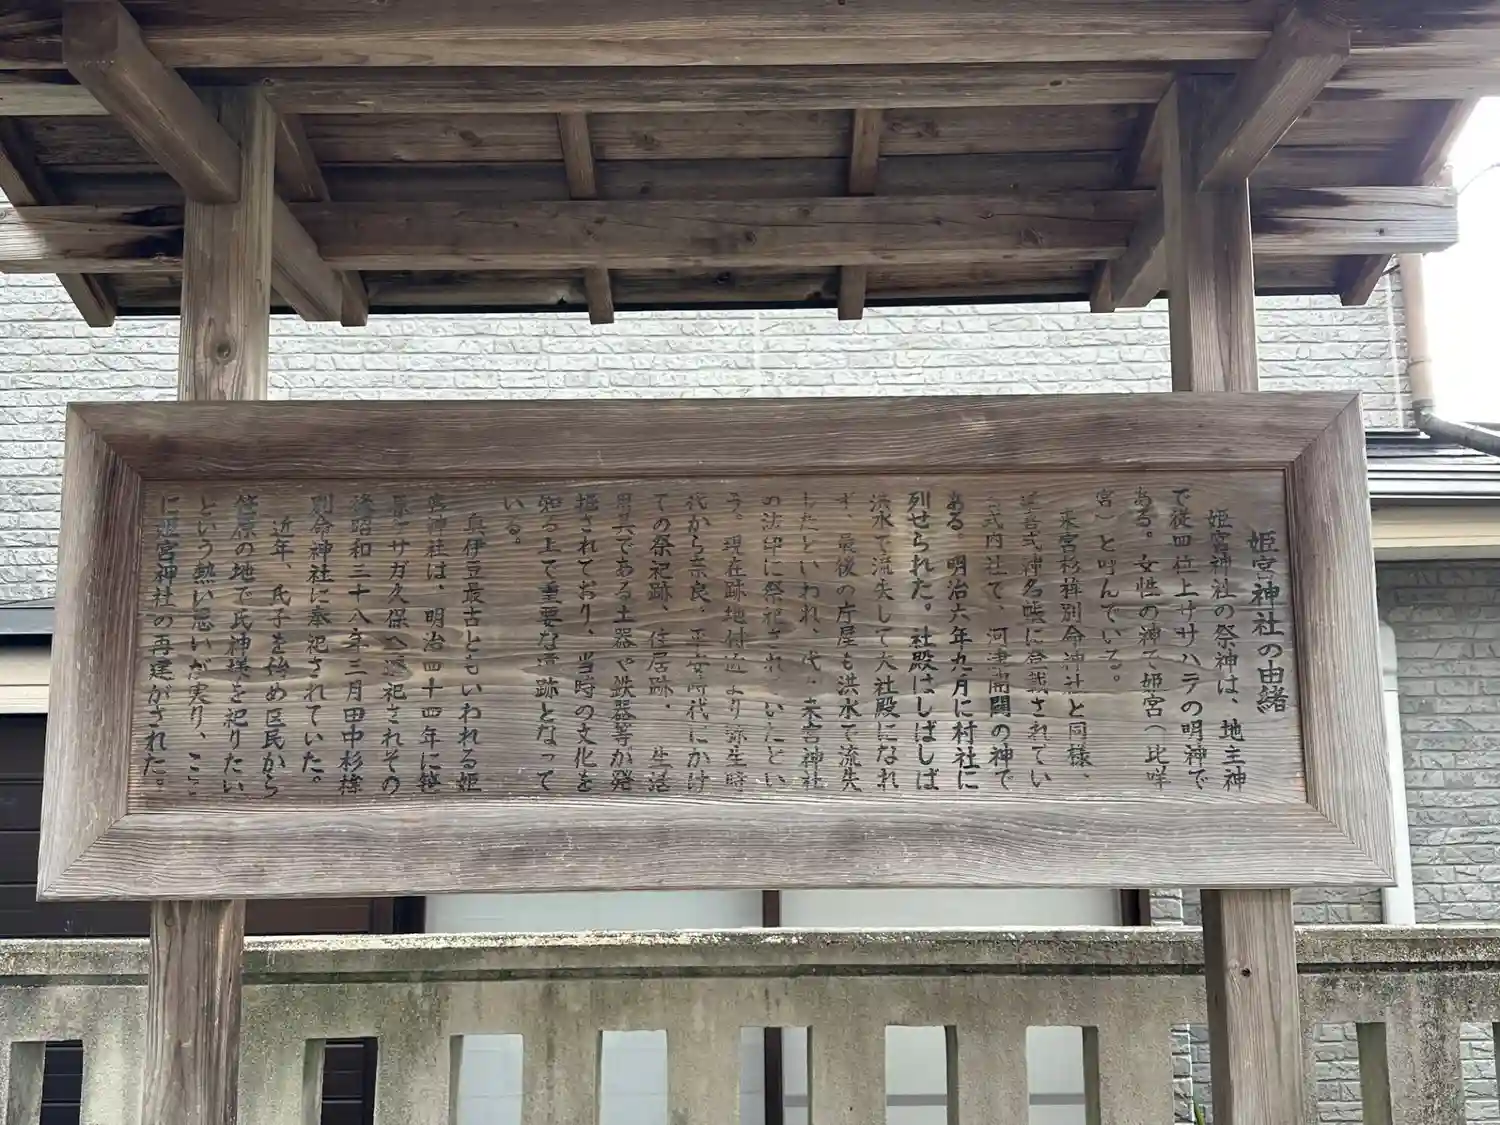 姫宮神社の由緒
姫宮神社の祭神は、地主神
で従四位上ササハラの明神で
ある。女性の神で姫宮(比咩
宮)と呼んでいる。
来宮杉桙別命神社と同様、
延喜式神名帳に登載されてい
る式内社で、河津開闢の神で
ある。明治六年九月に村社に
列せられた。社殿はしばしば
洪水で流失して大社殿になれ
ず、最後の庁屋も洪水で流失
したといわれ、代々来宮神社
の法印に祭祀されていたとい
う。現在跡地付近より弥生時
代から奈良、平安時代にかけ
ての祭祀跡、住居跡、生活
用具である土器や鉄器等が発
掘されており、当時の文化を
知る上で重要な遺跡となって
いる。
奥伊豆最古ともいわれる姫
宮神社は、明治四十四年に笹
原サガ久保へ遷祀されその
後昭和三十八年三月田中杉桙
別命神社に奉祀されていた。
近年、氏子を始め区民から
笹原の地で氏神様を祀りたい
という熱い思いが実り、ここ
に姫宮神社の再建がされた。